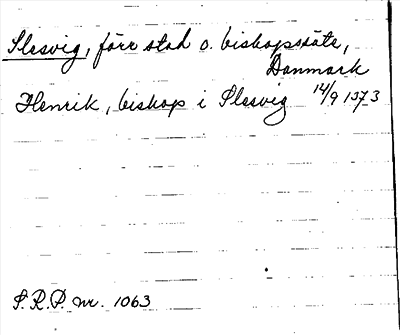 Slesvig, förr stad o. biskopssäte,
Danmark
Henrik, biskop i Slesvig 14/9 1373
S.R.P. nr. 1063